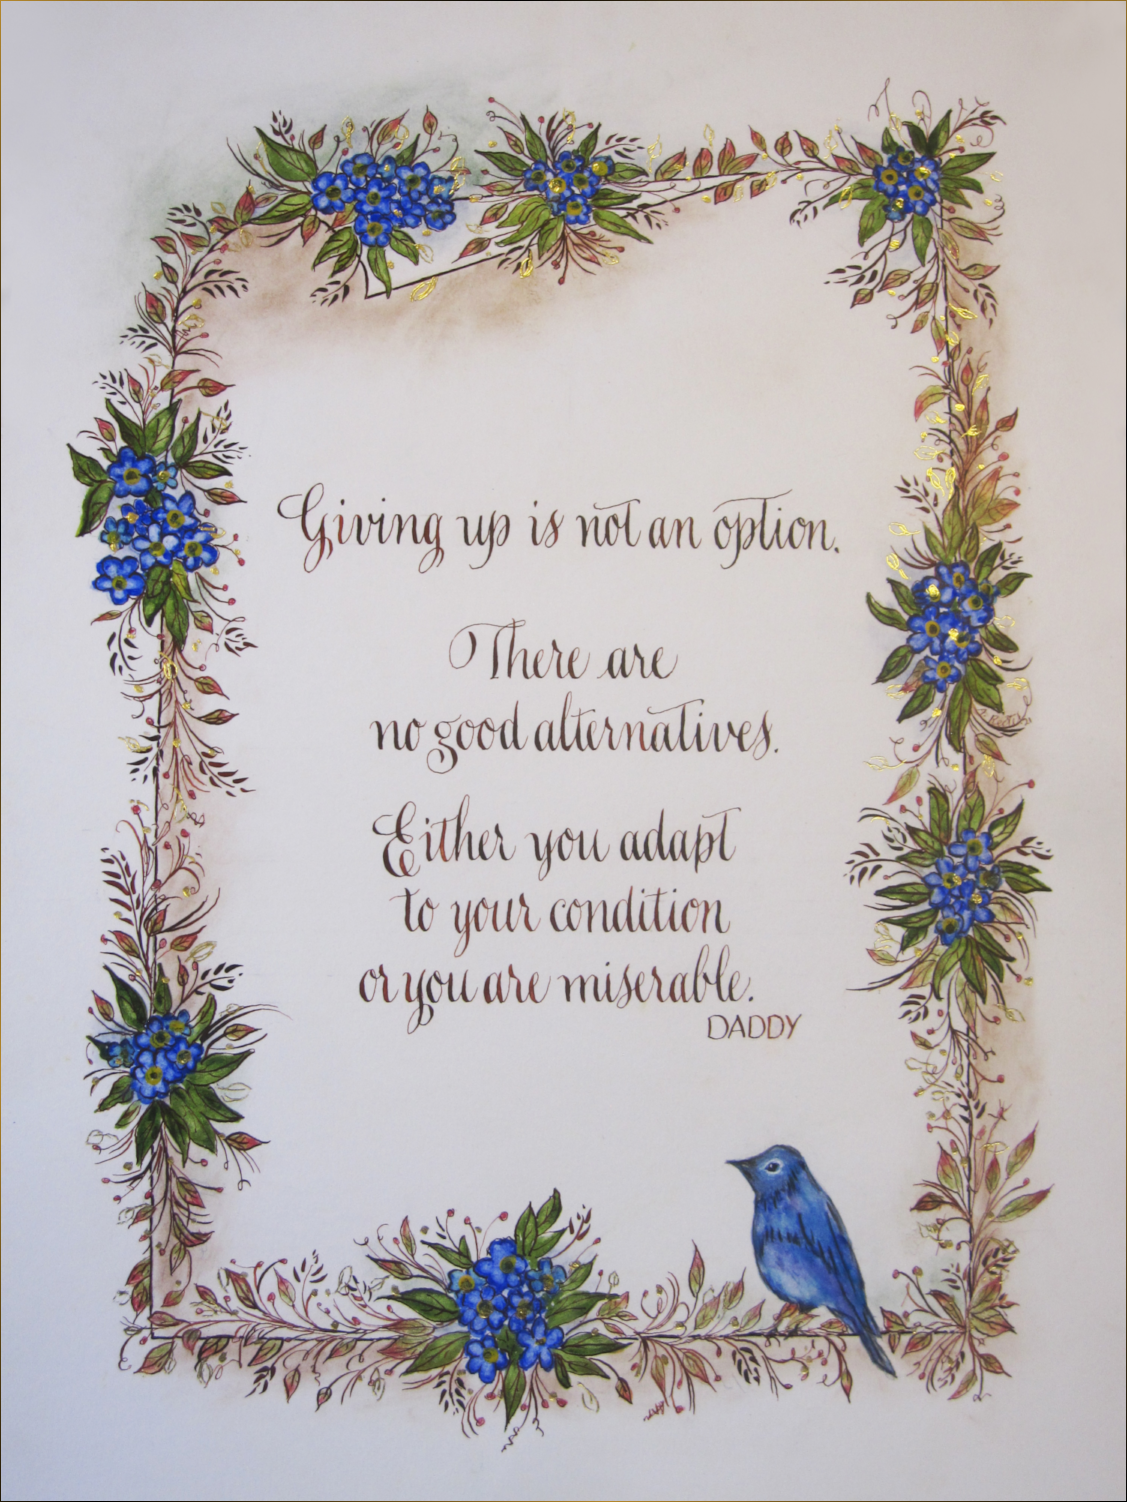 Giving up is not an option.
There are
no good alternatives.
Either you adapt
to your condition
or you are miserable.
DADDY